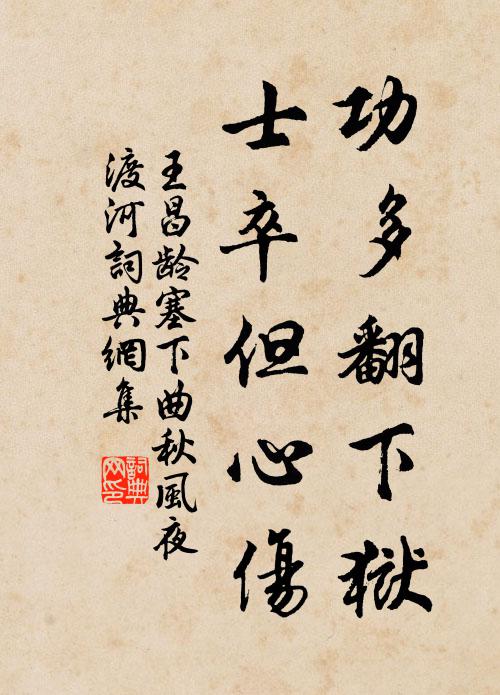 功多翻下獄
士卒但心傷
王昌龄塞下曲秋風夜
渡河詞典網集
詞典
网印